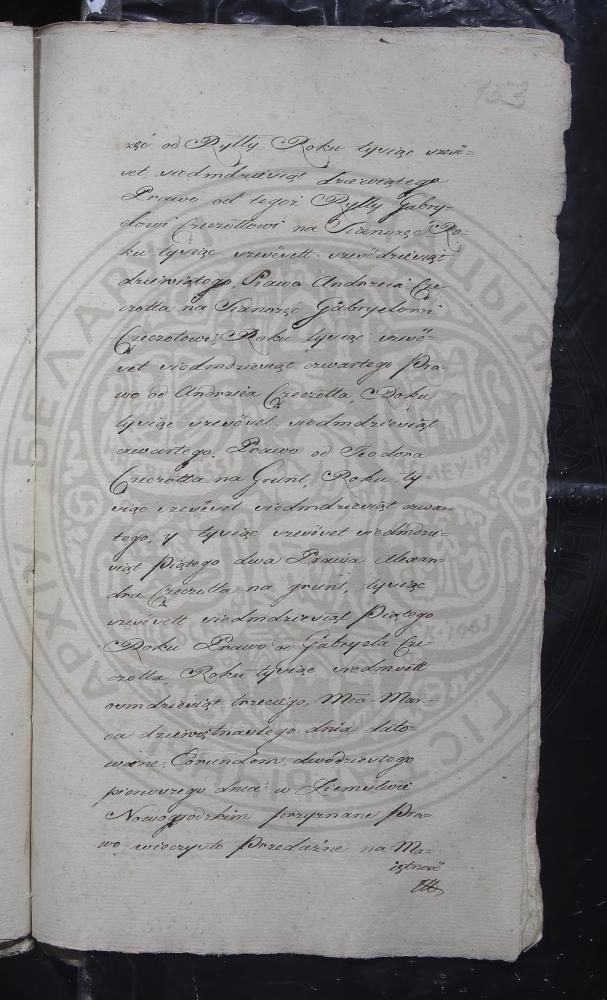 153
żąć od Rylły Roku tysiąc szećś=
set siedmdziesiąt dziewiątego
Prawo od tegoż Rylły Gabry=
elowi Czeczottowi na Sianożęć Ro=
ku tysiąc sześćsett sześćdziesiąt
dziewiątego, Prawo Andrzeia Cze=
czotta na Sianożęć Gabryelowi
Czeczotowi, Roku tysiąc sześć=
set siedmdziesiąt czwartego Pra=
wo od Andrzeia Czeczotta, Roku
tysiąc sześćset siedmdziesiąt
czwartego, Prawo od Teodora
Czeczotta na Grunt, Roku ty=
siąc sześćset siedmdziesiąt czwar
tego, y tysiąc sześćset siedmdzie=
siąt Piątego dwa Prawa Alexan=
dra Czeczotta na grunt, tysiąc
sześćsett siedmdziesiąt Piątego
Roku Prawo Gabryela Cze=
czotta Roku tysiąc siedmsett
osmdziesiąt trzeciego, Mca Mar=
ca dziewiętnastego dnia dato=
wane, Eorundem dwudziestego
pierwszego dnia w Ziemstwie
Nowogrodzkim przyznane Pra=
wo wieczysto Przedażne na Ma=
iętność